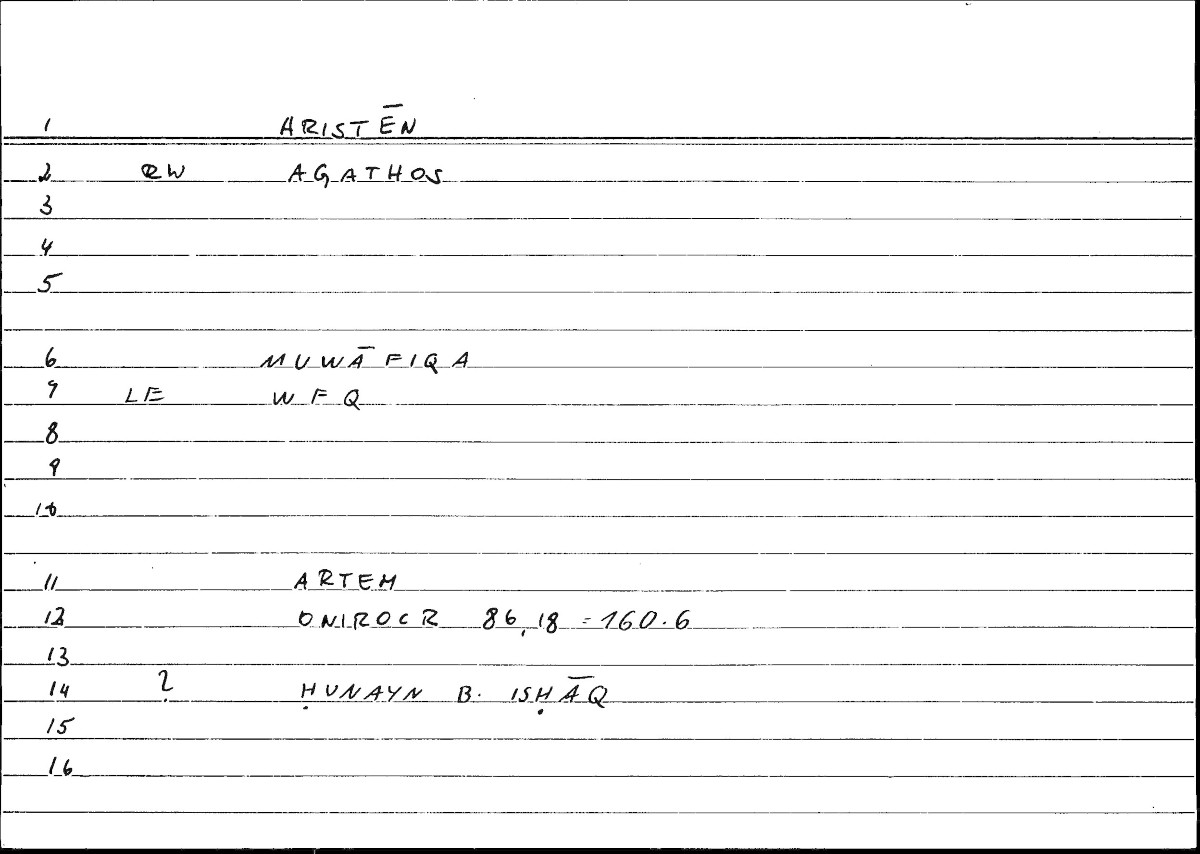 1 ARISTĒN
2 RW AGATHOS
3
4
5
6 MUWĀFIQA
7 LE WFQ
8
9
10
11 ARTEM
12 ONIROCR 86,18 = 160.6
13
14 ? ḤUNAYN B. ISḤĀQ
15
16